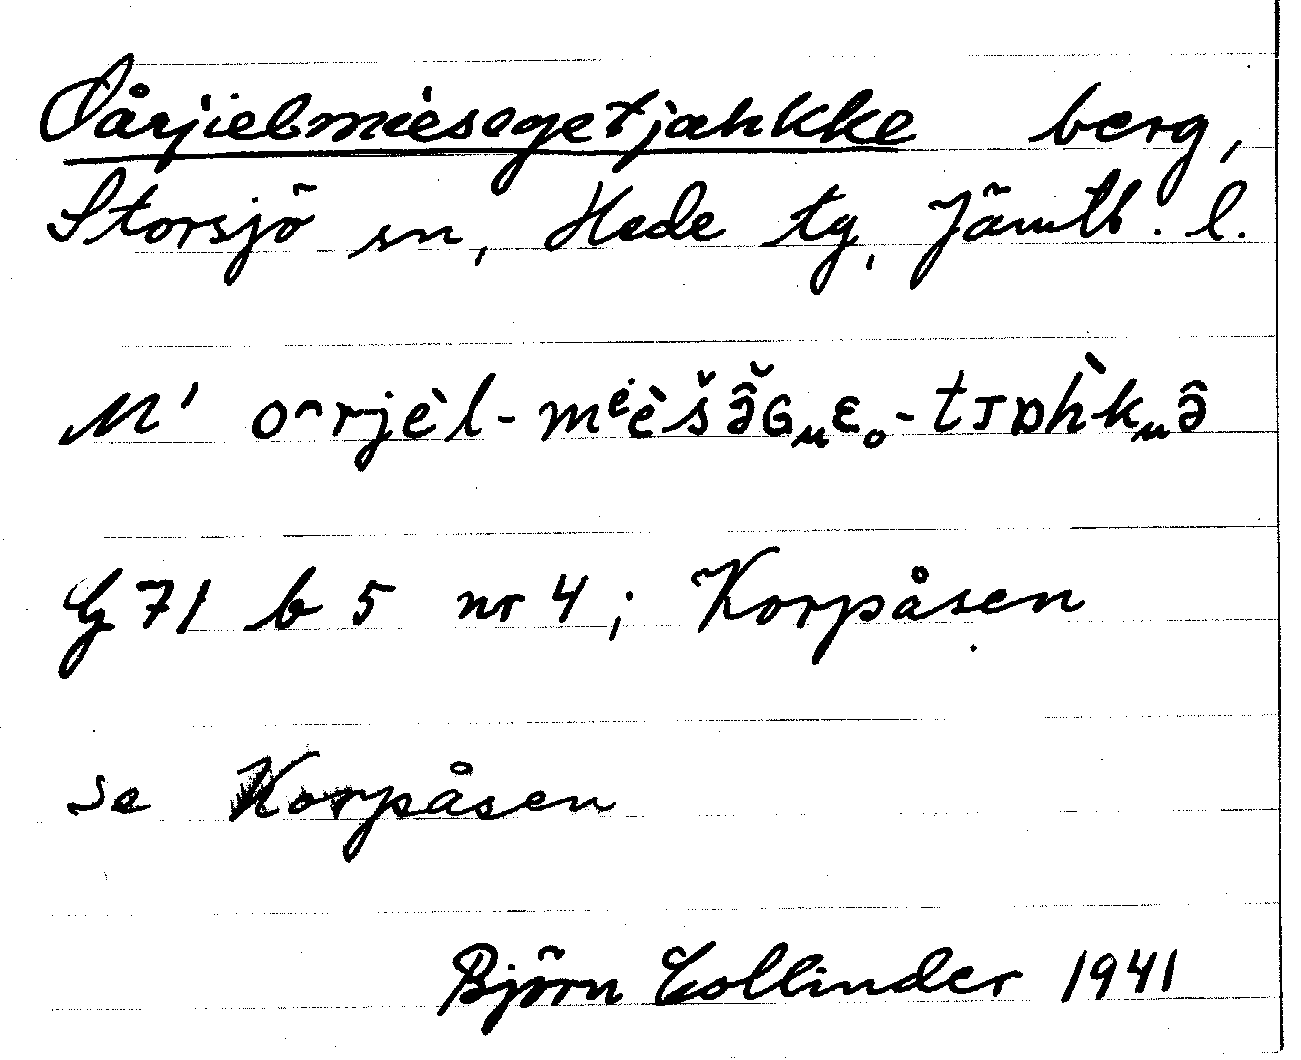 Oårjielmiesegetjahkke berg,
Storsjö sn, Hede tg, Jämtl. l.
M' oᴖrjèl-mᵉèšə̂̆ɢᵤɛₒ-tᴊᴅh̀kᵤə̂
G 71 b 5 nr 4; Korpåsen
se Korpåsen
Björn Collinder 1941